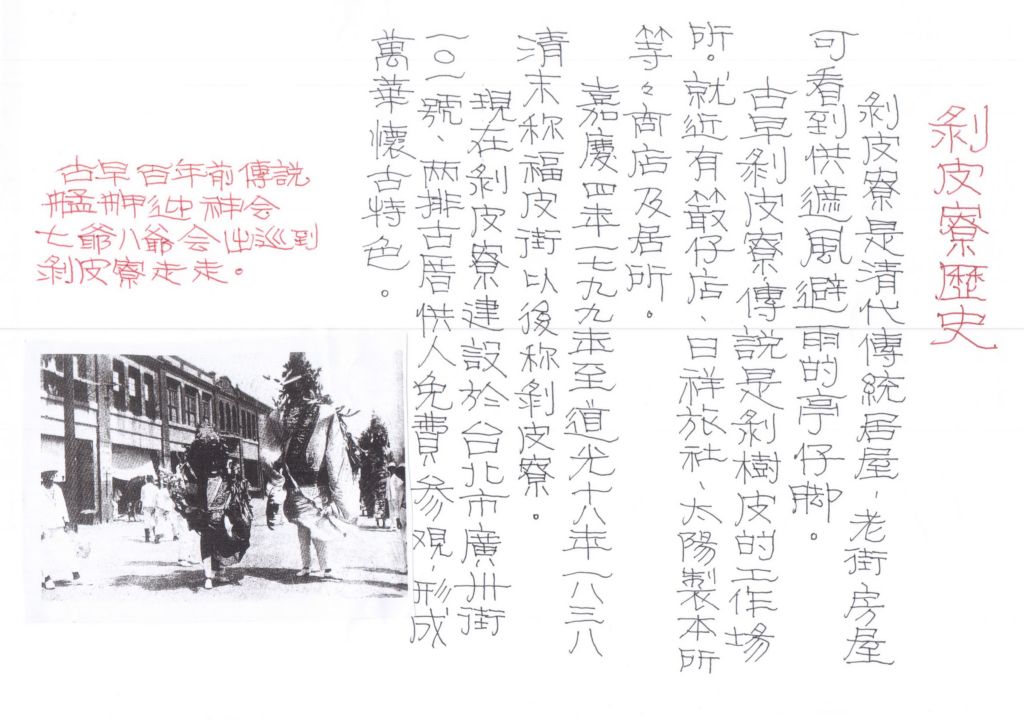 剝皮寮歷史
剝皮寮是清代傳統居屋、老街房屋
可看到供遮風避雨的亭仔腳。
古早剝皮寮傳説是剝樹皮的工作場
所。就近有簑仔店、日祥旅社、太陽製本所
等々商店及居所。
嘉慶四年一七九九年至道光十八年一八三八
清末称福皮街以後称剝皮寮。
現在剝皮寮建設於台北市廣州街
一〇一號、兩排古厝供人免費參观、形成
萬華懷古特色。
古早百年前傳説
艋舺迎神会
七爺八爺会出巡到
剝皮寮走走。